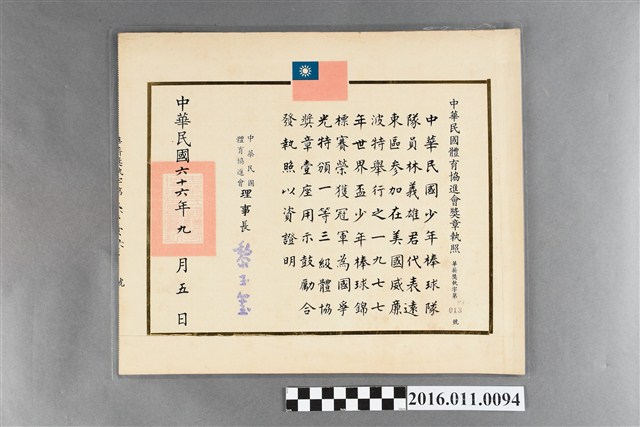 中華民國體育協進會獎章執照
華岳獎執字第 013 號
中華民國少年棒球隊
隊員林義雄君代表遠
東區參加在美國威廉
波特舉行之一九七七
年世界盃少年棒球錦
標賽榮獲冠軍為國爭
光特頒一等三級體協
獎章壹座用示鼓勵合
發執照以資證明
中華民國
體育協進會 理事長 黎玉璽
中華民國六十六年九月五日
號
2016.011.0094